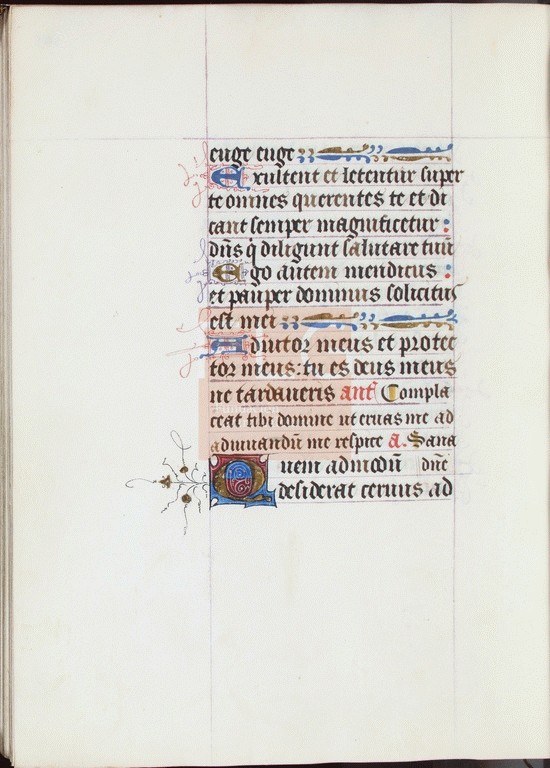 euge euge
Exultent et letentur super
te omnes querentes te et di
cant semper magnificetur :
dn̄s q̄ diligunt salutare tuū
Ego autem mendicus :
et pauper dominus solicitus
est mei
Adiutor meus et protec
tor meus: tu es deus meus
ne tardaveris ant̄ Compla
ceat tibi domine ut eruas me ad
adiuuandū me respice a. Sana
Quem admodū dn̄e
desiderat ceruus ad